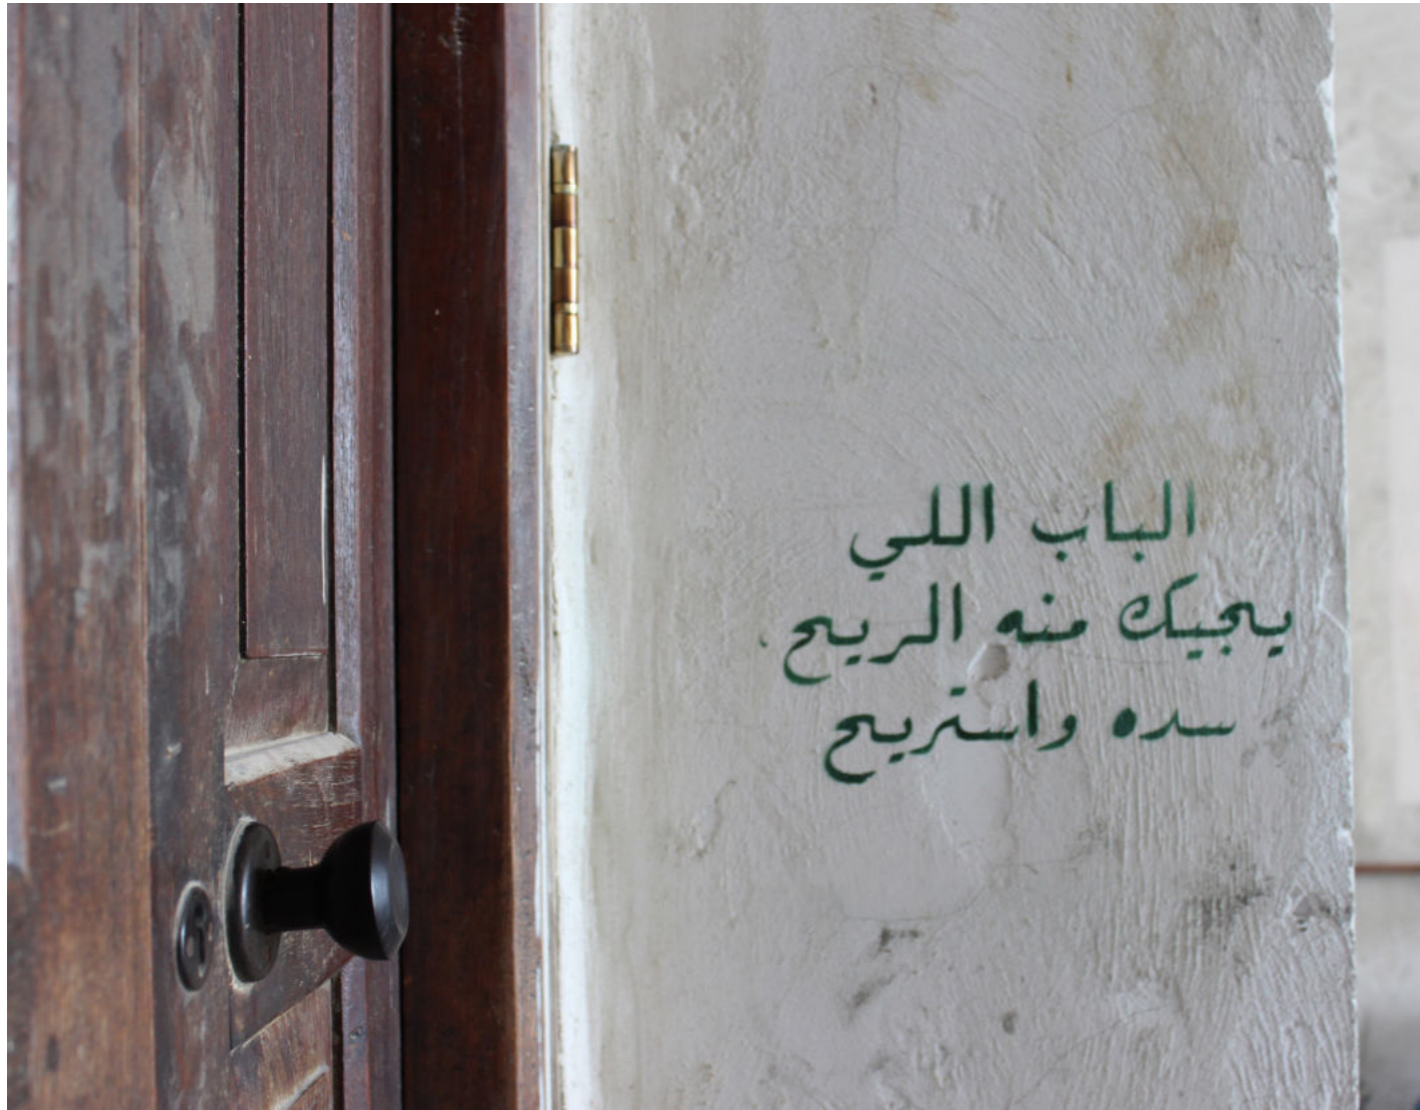 الباب اللي
يجيك منه الريح
سده واستريح